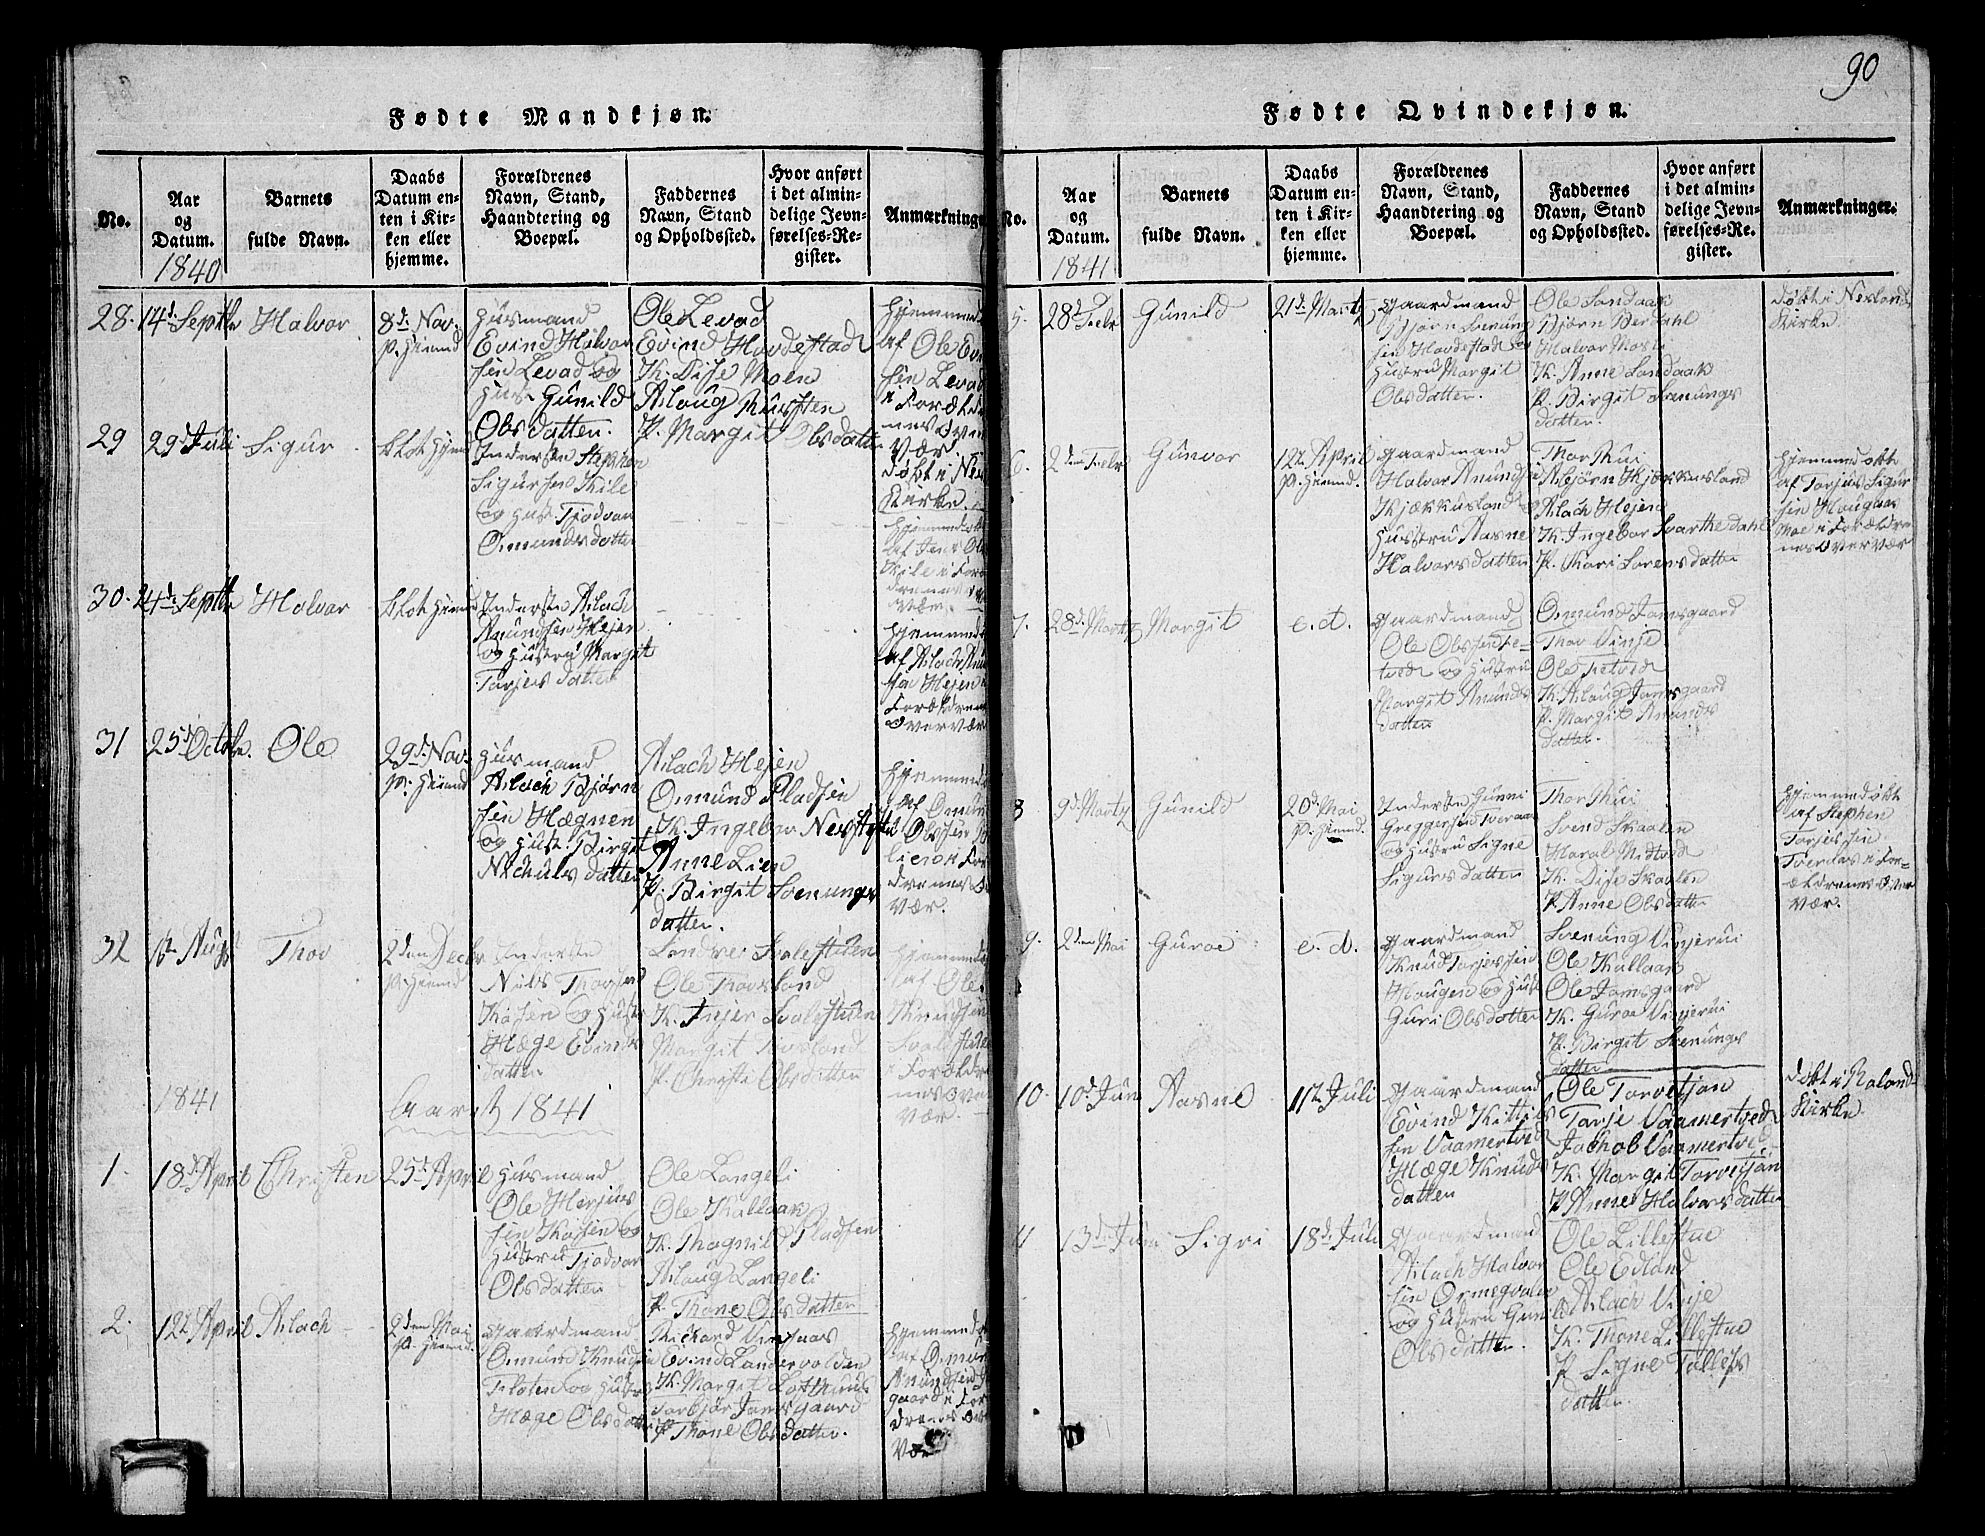 90
Fødte Mandkjøn.
No.
Aar
og
Datum.
1840
Barnets
fulde Navn.
Daabs
Datum en-
ten i Kir-
ken eller
hjemme.
Forældrenes
Navn, Stand,
Haandtering og
Boepæl.
Faddernes
Navn, Stand
og Opholdssted.
Hvor anført
i det almin-
delige Jevn-
førelses-Re-
gister.
Anmærkninge
28. 14d Septbr Halvor
8d. Nov.
p. Hiemd
Husmand
Evind Halvor
sen Levad og
Hus. Gunild
Olsdatter.
Ole Levad
Evind Hovdestad
K. Dise Moen
Aslaug
P. Margit Olsdatter
Hjemmed
af Ole Evi
sen Levad
i Foræld
nes Over
Vær
29 29d Juli Sigur
blot Hjemd
Inderste Stephen
Sigursen Kile
og Hust. Tjodvor
Omundsdatter
døbt i Nes
Kirke.
Hjemmedøbt
af Jens Ol
Kile i Foræl
drenes
vær.
30. 24d Septbr Halvor
blot Hiemd
Inderste Aslach
Anundsen Hejen
og Hustru Margit
Tarjeisdatter
Hjemmed
af Aslach Anu
sen Hejen i
Forældrene
Overvær
31 25d Octobr. Ole
29d. Nov.
p. Hiemd
Husmand
Aslach Bjørn
sen Hægnen
og Hust. Birgit
Nichulsdatter
Aslach Hejen
Omund Pladsen
K. Ingebor
Anne Lien
P. Birgit Svenungs
datter.
Hjemmed
af Omun
Olssen
i For
drenes O
vær.
32 Thov
2den Decbr
p. Hiemd
Inderste
Nils Thovsen
Kaasen og Hust
Hæge Evinds
datter
Sondre Svalestuen
Ole Thovsland
K. Injer Svalestuen
Margit Tovsland
P. Christi Olsdatter
Hjemmed
af Ole
Knudsen
Svalestue
i Forældre
nes Over
vær.
1841
Aaret 1841
1. 18d April Christen
25d April
Husmand
Ole Herjus
sen Kaasen og
Hustrue Tjodvor
Olsdatter
Ole Langeli
Ole Kallaak
K. Thagnild Pladsen
Aslaug Langeli
P. Thone Olsdatter
2. 12te April Aslach
2den Mai
p. Hiemd.
Gaardmand
Omund Knudsen
Floten og Hustr
Hæge Olsdatter
Rickard Vinsnæs
Evind Landsvolden
K. Margit
Torbjør Jamsgaard
P. Thone Olsdatter.
Hjemmed
af Omun
Anundsen J
gaard i For
drenes Ov
Vær
Fødte Qvindekjøn.
No.
Aar
og
Datum.
1841
Barnets
fulde Navn.
Daabs
Datum en-
ten i Kir-
ken eller
hjemme.
Forældrenes
Navn, Stand,
Haandtering og
Boepæl.
Faddernes
Navn, Stand
og Opholdssted.
Hvor anført
i det almin-
delige Jevn-
førelses-Re-
gister.
Anmærkninger.
5. 28d Febr Gunild
21d. Martz
Gaardmand
Bjørn Svenung
sen Hovdestad og
Hustru Margit
Olsdatter.
Ole Sandaak
Bjørn Berdahl
Halvor Moen
K. Anne Sandaak
P. Birgit Svenungs
datter.
døbt i Nesland
Kirke.
6. 2den Febr Gunvor
12te April
p. Hiemd.
Gaardmand
Halvor Anundsen
Kjækkusland
Hustru Aasne
Halvorsdatter
Thor Hui
Asbjørn Kjækkusland
Aslach Hejen
K. Ingebor Svartedahl
P. Kari Sorensdatter
Hjemmedøbt
af Tarjus Sigur
sen Haugaas
Moe i Forældre
nes Overvær
7. 28d Martz Margit
e. d.
Gaardmand
Ole Olssen
tved og Hustru
Margit Anunds
datter
Omund Jamsgaard
Thor Vinje
Ole Tretved
K. Aslaug Jamsgaard
P. Margit Anunds
datter.
8 9d Martz Gunild
20d Mai
p. Hiemd.
Inderste Gunni
Greggersen Tveraa
og Hustru Signe
Sigursdatter
Thor Hui
Svend Skaalen
Haral Midtved
K. Dise Skaalen
P. Anne Olsdatter
Hjemmedøbt
af Stephen
Tarjeisen
Tverdas i For-
ældrenes Over
vær.
9. 2den Mai Guroe
e. d.
Gaardmand
Knud Tarjeisen
Haugen og Hust
Guri Olsdatter
Svenung Vinjerui
Ole Kallaak
Ole Jamsgaard
K. Guroe Vinjerui
P. Birgit Svenungs
datter
10. 10d Jun Aasne
11te Juli
Gaardmand
Evind Kittils
sen Vaamertved
Hæge Knuds
datter
Ole Torvetjøn
Tarje Vaamertved
Jachob Vaamertved
K. Margit Torvetjøn
P. Anne Halvorsdatter
døbt i Roland
Kirke.
11 13d Juni Sigri
18d. Juli
Gaardmand
Aslach Halvor
sen Ormegvalen
og Hustru Gunild
Olsdatter.
Ole Lillestue
Ole Edland
Aslach Vinje
K. Thone Lillestue
P. Signe Tallefs
datter.